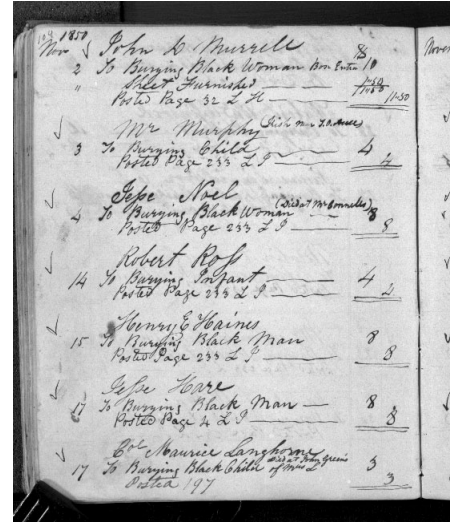 108 1850
Nov John L Murrell $
2 To Burying Black Woman Box Extra 10
" Sheet Furnished 1-50
Posted Page 32 L H 11-50
Mr Murphy
3 To Burying Child 4
Posted Page 233 L I 4
Jesse Noel
4 To Burying Black Woman (Died at McConnells) 8
Posted Page 233 L I 8
Robert Ross
14 To Burying Infant 4
Posted Page 233 L I 4
Henry E Haines
15 To Burying Black Man 8
Posted Page 233 L I 8
Jesse Hare
17 To Burying Black Man 8
Posted Page 4 L I 8
Col Maurice Langhorne
17 To Burying Black Child of Miss L Died at John Greens 3
Posted 197 3
Nov